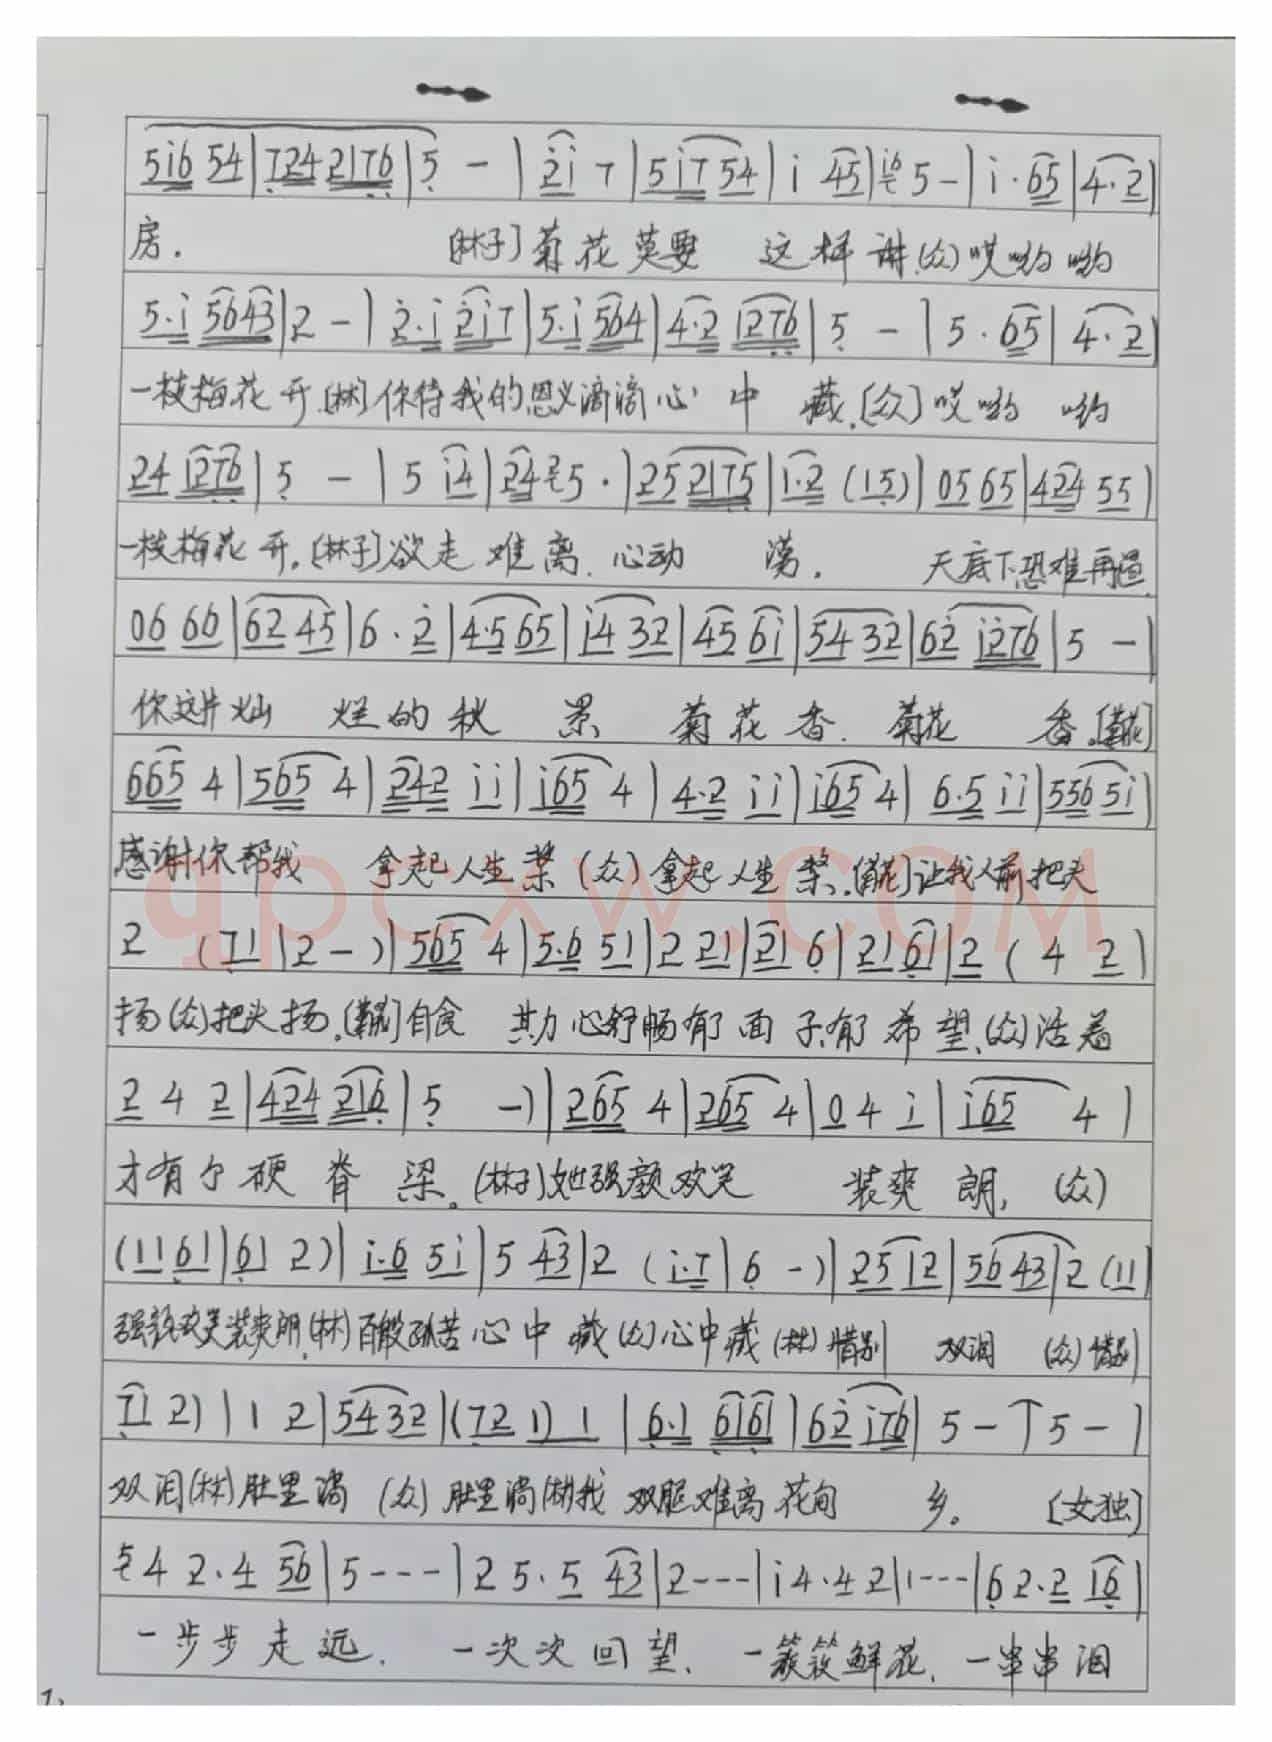 5i6 54|724 2176|5 - |2i 7|5i7 54|i 45|i6 5-|i·65|4·2|
房. [林子]菊花莫要 这样讲.(众)哎哟哟
5·i 5643|2 -|2·i 2i7|5·i 564|4·2 1276|5 - |5·65|4·2|
一枝梅花开.[林]你待我的恩义滴滴心中 藏.[众]哎哟 哟
24 1276|5 - |5 i4|24 2 5·|25 2175|1·2 (15)|05 65|424 55|
一枝梅花开.[林子]欲走难离.心动 荡. 天底下恐难再逢.
06 66|62 45|6·2|4·5 65|i4 32|45 6i|54 32|62 i276|5 -|
你这片灿 烂的秋 景 菊花香.菊花 香.[菊花]
665 4|565 4|242 ii|i65 4|4·2 ii|i65 4|6·5 ii|556 5i|
感谢你帮我 拿起人生桨(众)拿起人生桨.[菊花]让我人前把头
2 (71|2 -)|565 4|5·6 51|2 21|21 6|21 61|2 (4 2|
扬(众)把头扬.[菊花]自食 其力心舒畅有面子有希望.(众)活着
2 4 2|424 216|5 -)|265 4|265 4|0 4 i|i65 4|
才有个硬脊梁。(林子)她强颜欢笑 装爽朗.(众)
(11 61|61 2)|i·6 5i|5 43|2 (i·7|6 -)|25 12|56 43|2 (11|
强颜欢笑装爽朗.(林)百般孤苦心中藏(众)心中藏(林)惜别 双泪 (众)惜别
71 2)|1 2|54 32|(72 1) 1|6·1 6161|62 i76|5 - 5 -|
双泪(林)肚里淌 (众)肚里淌(林)我双腿难离花甸 乡。 [女独]
5 4 2·4 56|5---|2 5·5 43|2---|i 4·4 2|1---|6 2·2 16|
一步步走远. 一次次回望、一簇簇鲜花、一串串泪
1,
qpcxw.com